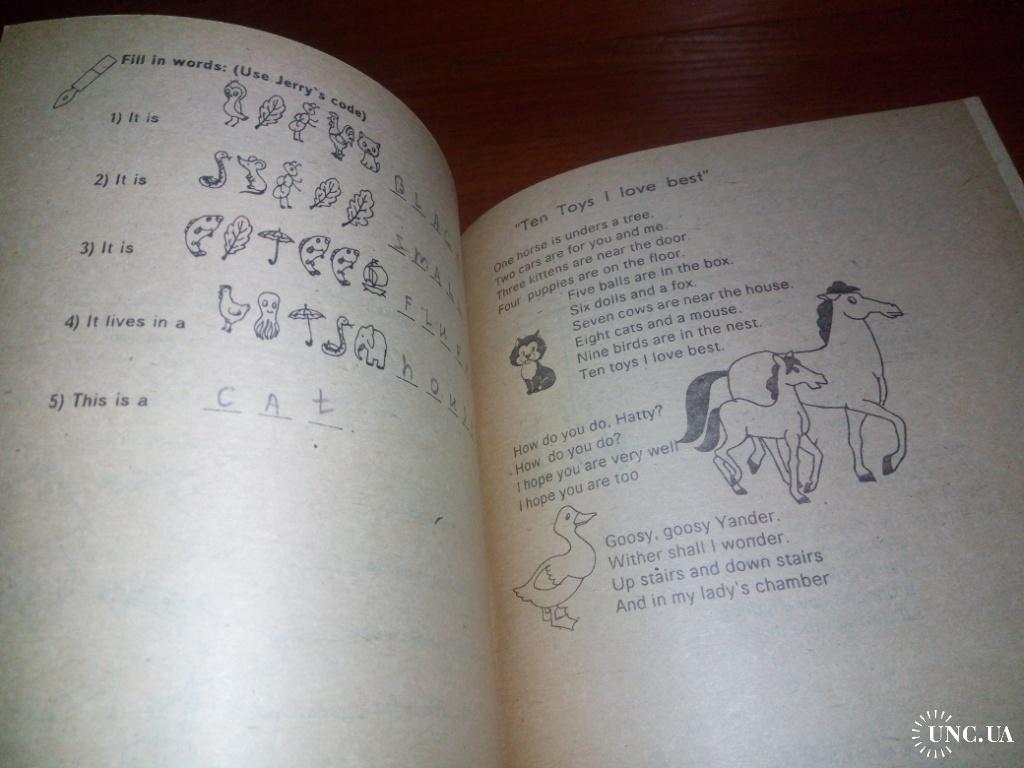 Fill in words: (Use Jerry's code)
1) It is B L A C
2) It is S M A L
3) It is F L U F
4) It lives in a h O U S
5) This is a C A t
"Ten Toys I love best"
One horse is unders a tree.
Two cars are for you and me.
Three kittens are near the door.
Four pupples are on the floor.
Five balls are in the box.
Six dolls and a fox.
Seven cows are near the house.
Eight cats and a mouse.
Nine birds are in the nest.
Ten toys I love best.
How do you do, Hatty?
How do you do?
I hope you are very well
I hope you are too
Goosy, goosy Yander.
Wither shall I wonder.
Up stairs and down stairs
And in my lady's chamber
UNC.UA